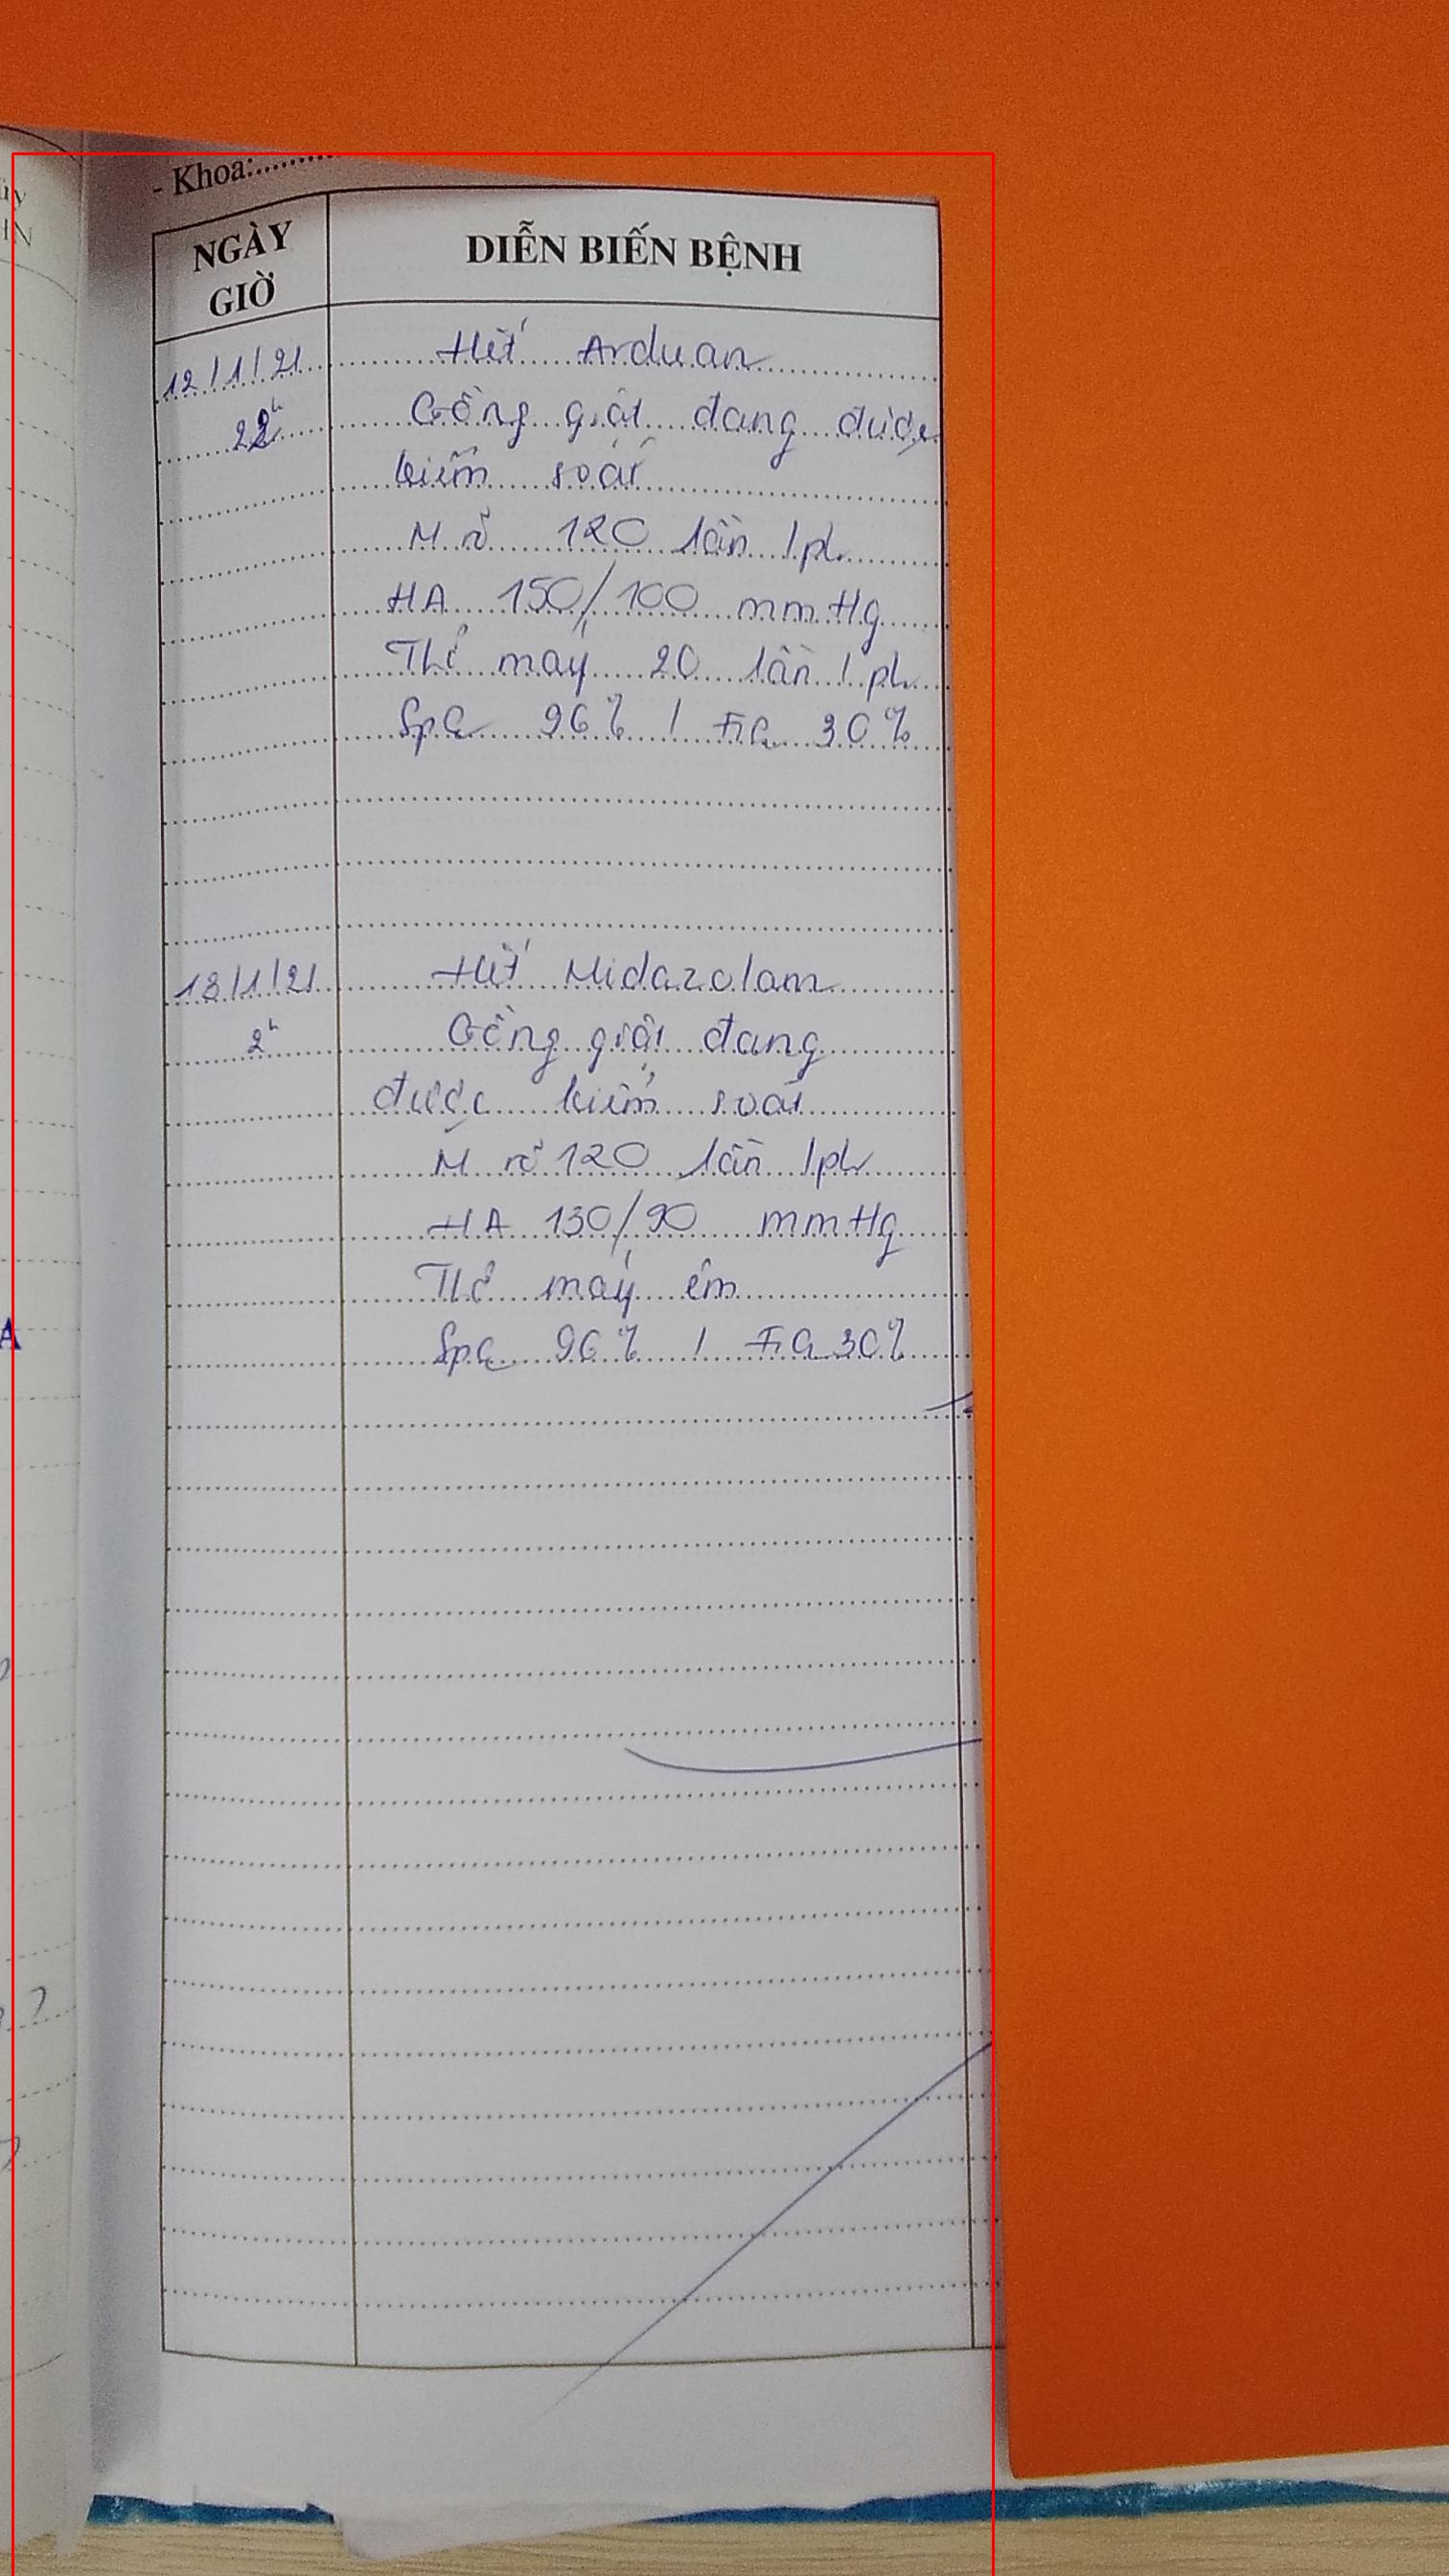 - Khoa:
NGÀY GIỜ
DIỄN BIẾN BỆNH
12/1/21 Hết Arduan
22h Gồng giật đang được
kiểm soát
M rõ 120 lần/ph
HA 150/100 mmHg
Thở máy 20 lần/ph
SpO2 96% / FiO2 30%
13/1/21 Hết Midazolam
2h Gồng giật đang
được kiểm soát
M rõ 120 lần/ph
HA 130/90 mmHg
Thở máy êm
SpO2 96% / FiO2 30%